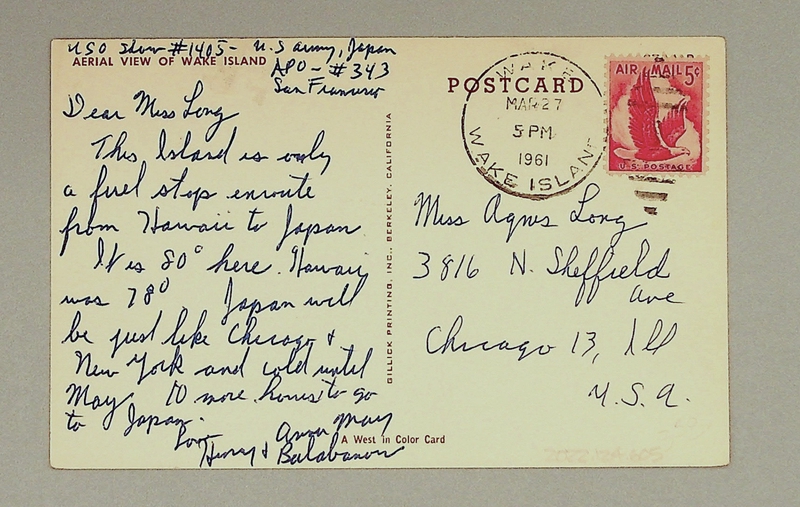 USO Show #1405 - U.S Army, Japan
APO - #343
San Francisco
AERIAL VIEW OF WAKE ISLAND
Dear Miss Long
This Island is only
a fuel stop enroute
from Hawaii to Japan
It is 80° here. Hawaii
was 78° Japan will
be just like Chicago &
New York and cold until
May 10 more hours to go
to Japan.
Love
Anna May
Henry & Balabanow
A West in Color Card
GILLICK PRINTING, INC., BERKELEY, CALIFORNIA
POSTCARD
WAKE
MAR 27
5 PM
1961
WAKE ISLAND
AIR MAIL 5¢
U.S. POSTAGE
Miss Agnes Long
3816 N. Sheffield
Ave
Chicago 13, Ill
U.S.A.
2022.124.605